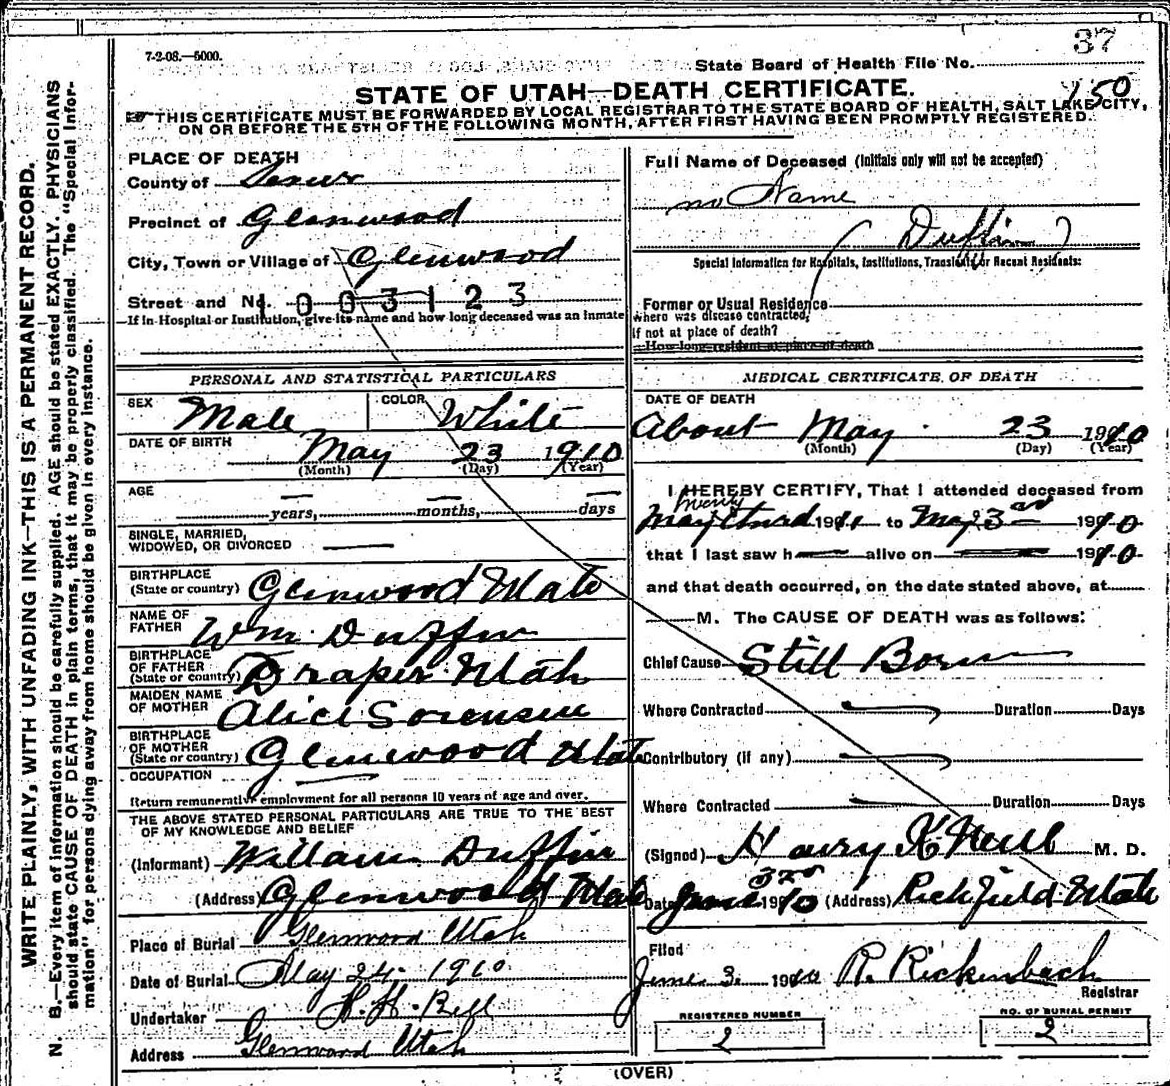 37
7-2-08.—5000.
State Board of Health File No.
150
STATE OF UTAH—DEATH CERTIFICATE.
THIS CERTIFICATE MUST BE FORWARDED BY LOCAL REGISTRAR TO THE STATE BOARD OF HEALTH, SALT LAKE CITY,
ON OR BEFORE THE 5TH OF THE FOLLOWING MONTH, AFTER FIRST HAVING BEEN PROMPTLY REGISTERED.
WRITE PLAINLY, WITH UNFADING INK—THIS IS A PERMANENT RECORD.
N. B.—Every item of information should be carefully supplied. AGE should be stated EXACTLY. PHYSICIANS
should state CAUSE OF DEATH in plain terms, that it may be properly classified. The "Special Infor-
mation" for persons dying away from home should be given in every instance.
PLACE OF DEATH
County of Sevier
Precinct of Glenwood
City, Town or Village of Glenwood
Street and No. 1003123
If in Hospital or Institution, give its name and how long deceased was an inmate
PERSONAL AND STATISTICAL PARTICULARS
SEX Male COLOR White
DATE OF BIRTH May 23 1910
(Month) (Day) (Year)
AGE — years, — months, — days
SINGLE, MARRIED,
WIDOWED, OR DIVORCED
BIRTHPLACE
(State or country) Glenwood Utah
NAME OF
FATHER Wm. Duffin
BIRTHPLACE
OF FATHER
(State or country) Draper Utah
MAIDEN NAME
OF MOTHER Alice Sorensen
BIRTHPLACE
OF MOTHER
(State or country) Glenwood Utah
OCCUPATION
Return remunerative employment for all persons 10 years of age and over.
THE ABOVE STATED PERSONAL PARTICULARS ARE TRUE TO THE BEST
OF MY KNOWLEDGE AND BELIEF
(Informant) William Duffin
(Address) Glenwood Utah
Place of Burial Glenwood Utah
Date of Burial May 24. 1910
Undertaker H. H. Bell
Address Glenwood Utah
Full Name of Deceased (Initials only will not be accepted)
no Name
( Duffin )
Special Information for Hospitals, Institutions, Transients or Recent Residents:
Former or Usual Residence
where was disease contracted,
if not at place of death?
How long resident at place of death
MEDICAL CERTIFICATE OF DEATH
DATE OF DEATH
About May 23 1910
(Month) (Day) (Year)
I HEREBY CERTIFY, That I attended deceased from
May twenty third 191 to May 23rd 1910
that I last saw h — alive on — 1910
and that death occurred, on the date stated above, at
M. The CAUSE OF DEATH was as follows:
Chief Cause Still Born
Where Contracted Duration Days
Contributory (if any)
Where Contracted Duration Days
(Signed) M. D.
Date June 3rd 1910 (Address) Richfield Utah
Filed
June 3. 1910 R. Rickenbach
Registrar
REGISTERED NUMBER
2
NO. OF BURIAL PERMIT
2
(OVER)